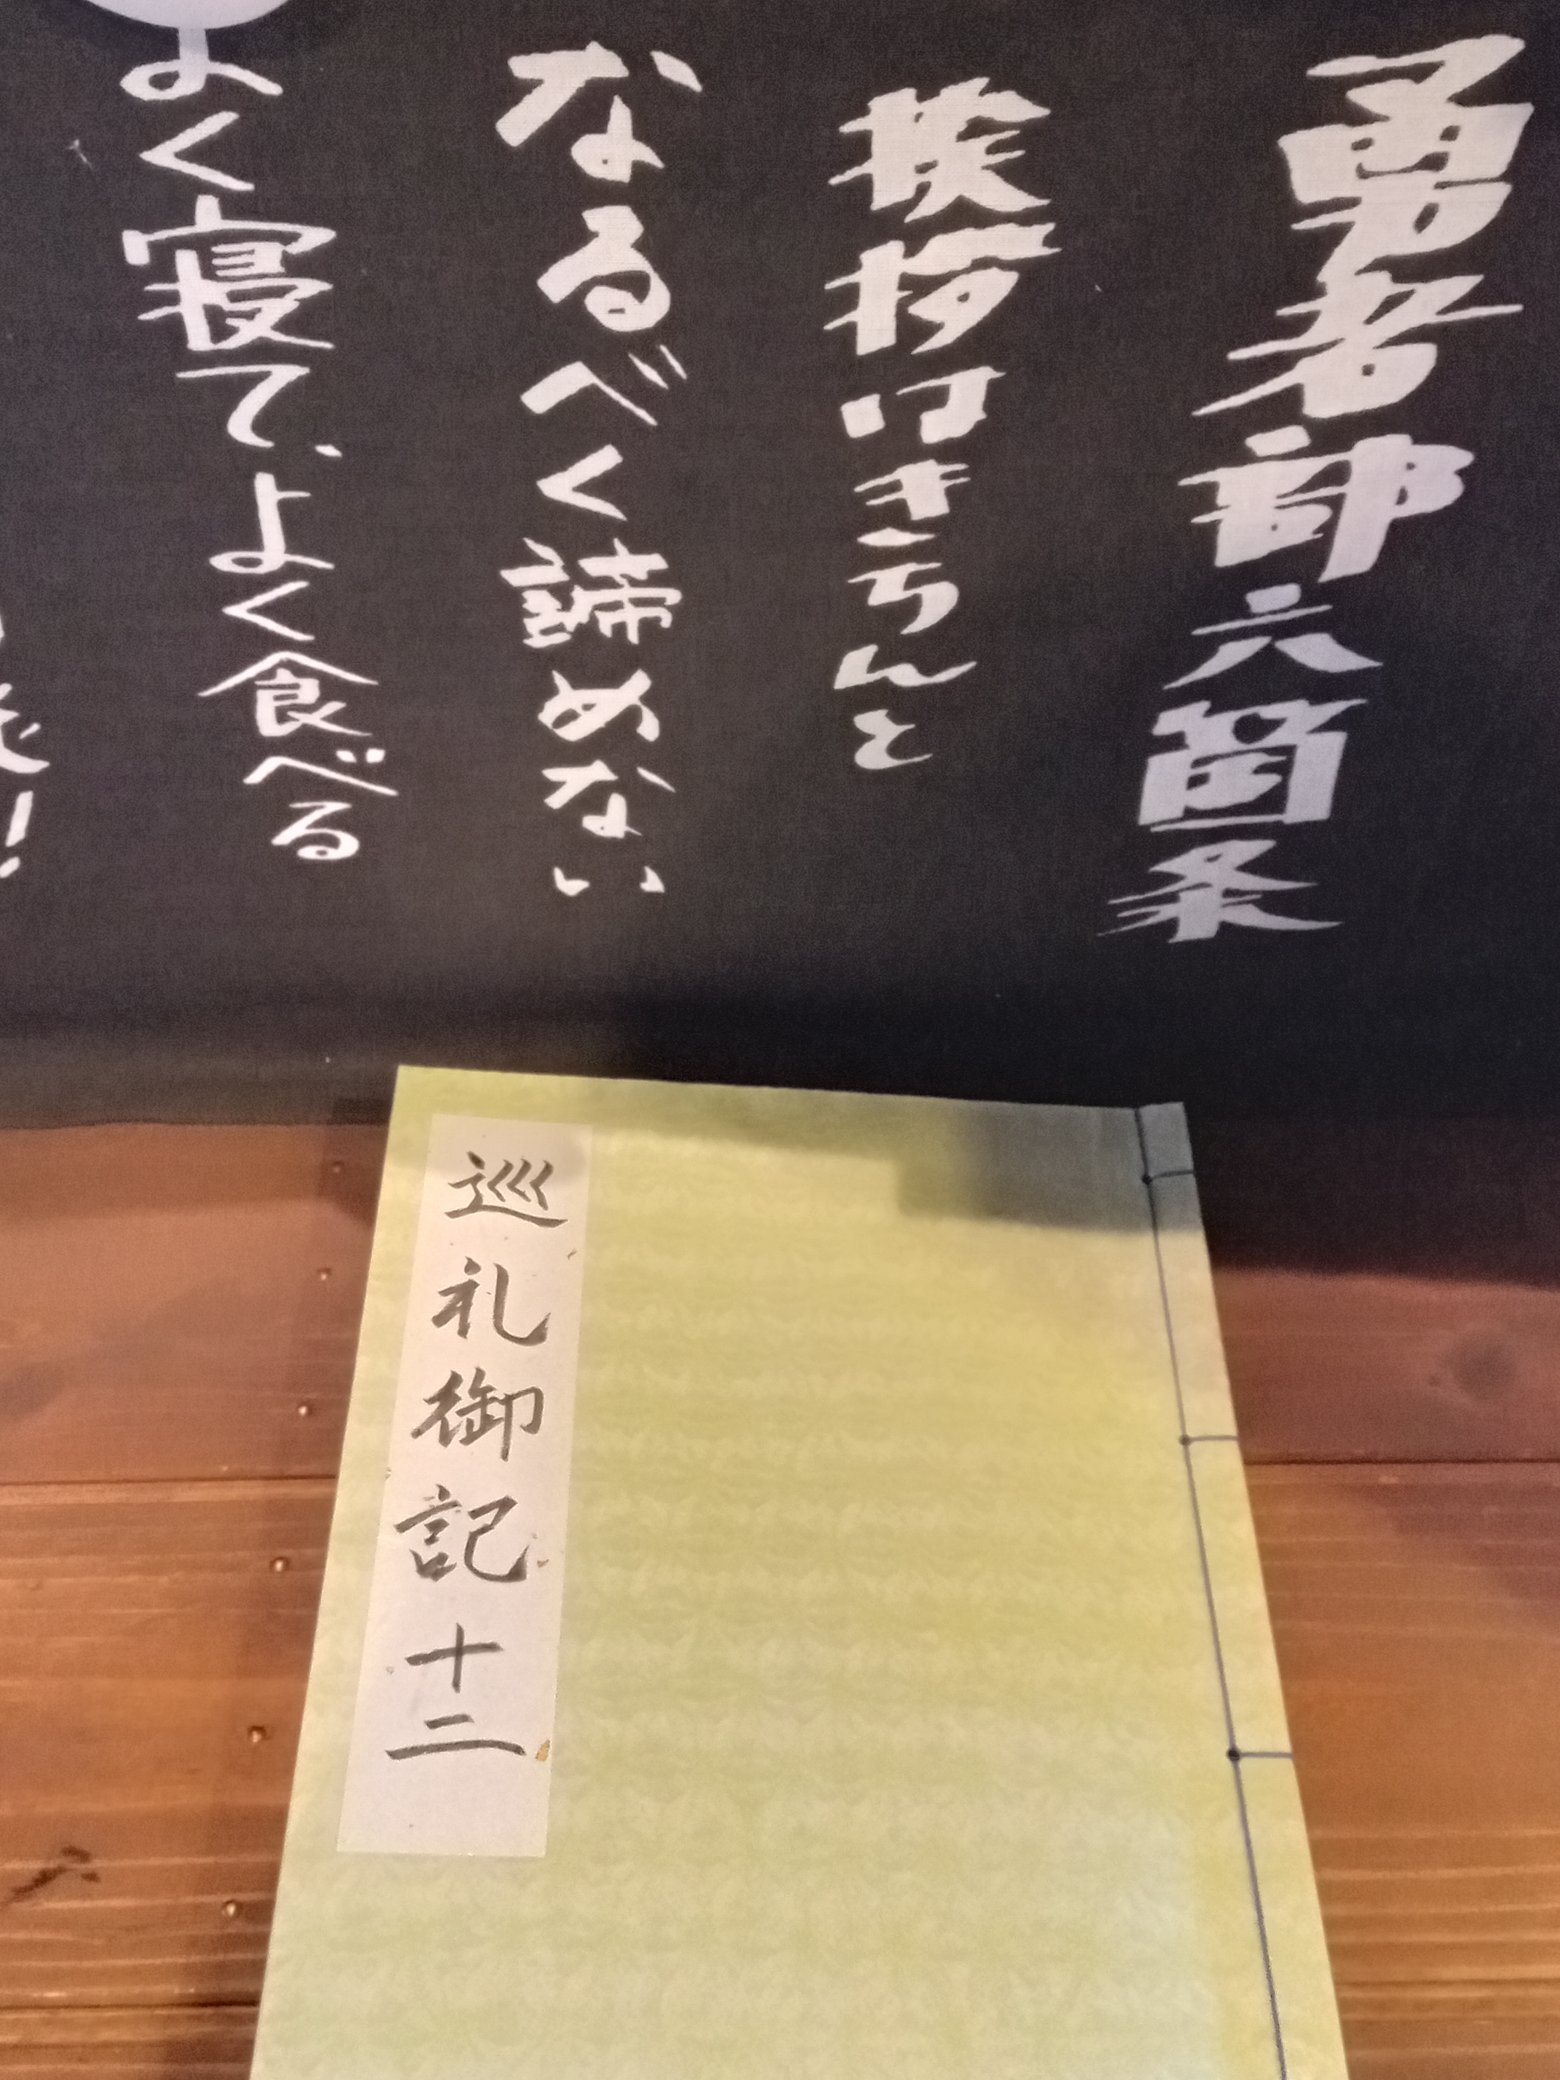 勇者部六箇条
挨拶はきちんと
なるべく諦めない
よく寝て、よく食べる
巡礼御記十二